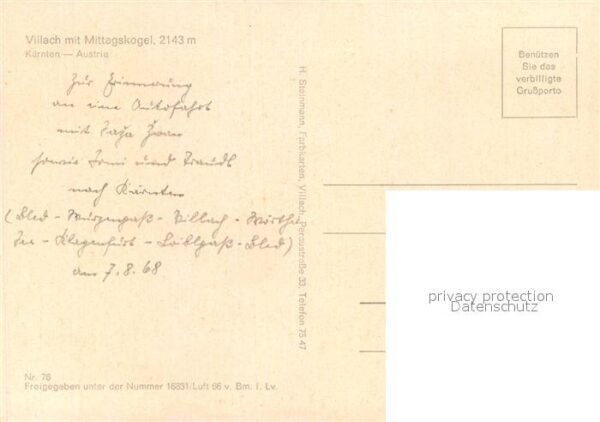 Villach mit Mittagskogel, 2143 m
Kärnten — Austria
Zur Erinnerung
an eine Autofahrt
mit
sowie und Traudl
nach Kärnten
(Bled - Wurzenpaß - Villach - Wörther
See - Klagenfurt - Loiblpaß - Bled)
am 7.8.68
Nr. 76
Freigegeben unter der Nummer 16831/Luft 66 v. Bm. f. Lv.
H. Steinmann, Farbkarten, Villach, Peraustraße 33, Telefon 75 47
Benützen
Sie das
verbilligte
Grußporto
privacy protection
Datenschutz